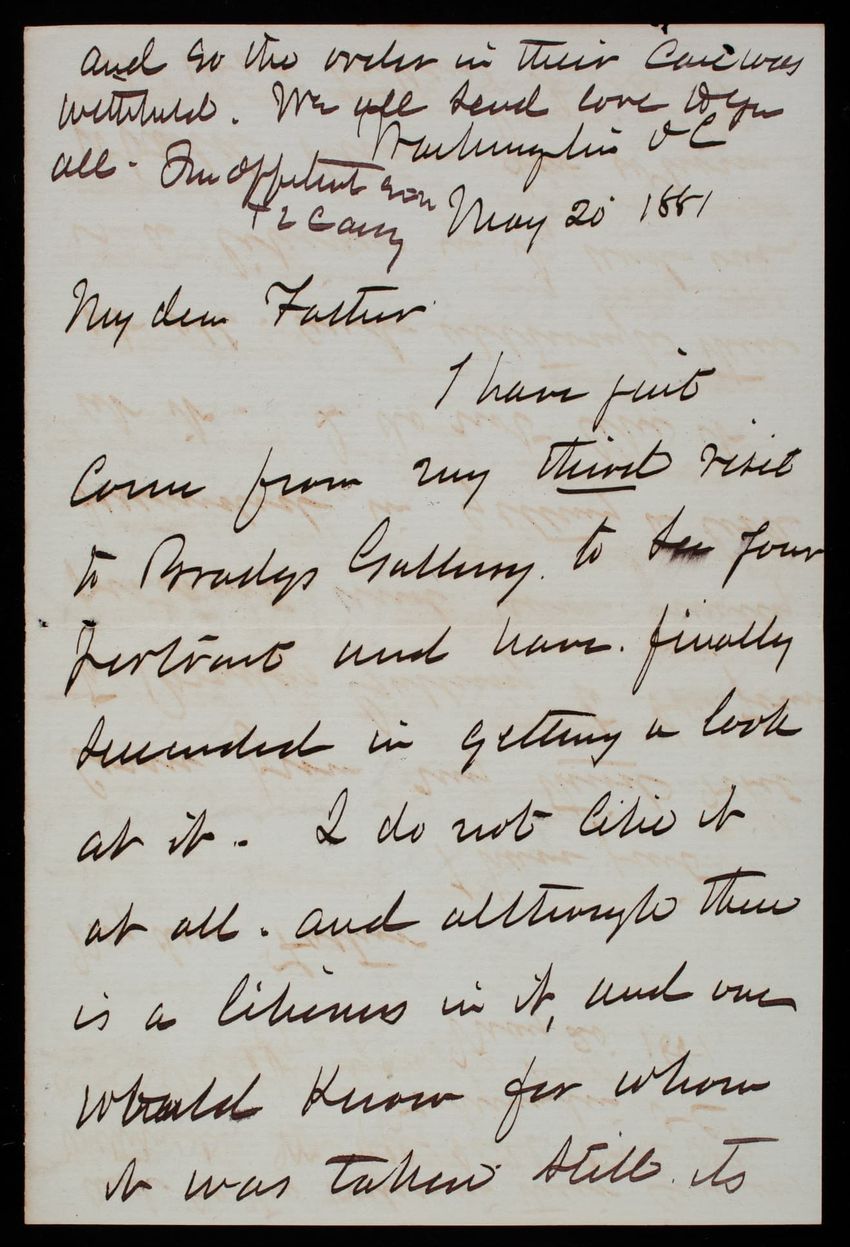 and so the order in their case was
withheld. We all send love to you
all. Your affectnt son
T L Casey
Washington D C
May 20 1881
My dear Father
I have just
come from my third visit
to Bradys Gallery. to see your
portrait and have. finally
succeeded in getting a look
at it. I do not like it
at all. and although there
is a likeness in it, and one
would know for whom
it was taken still its